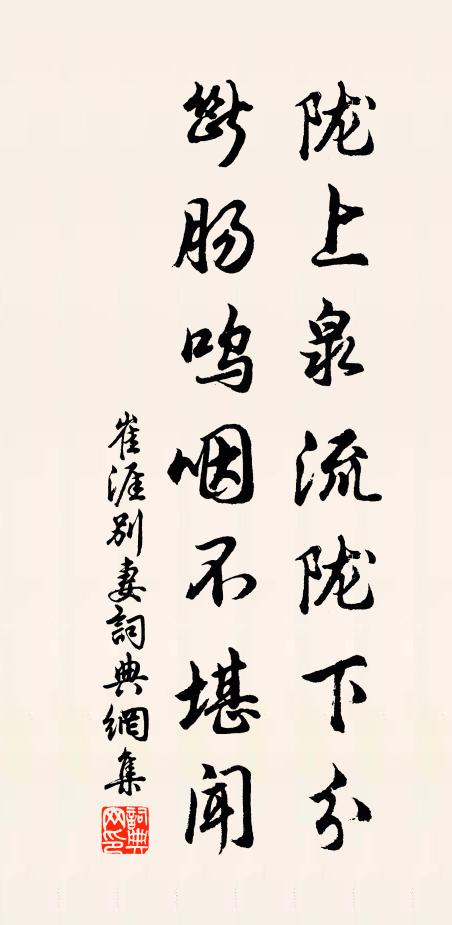 陇上泉流陇下分
断肠呜咽不堪闻
崔涯别妻詞典網集
詞典网印